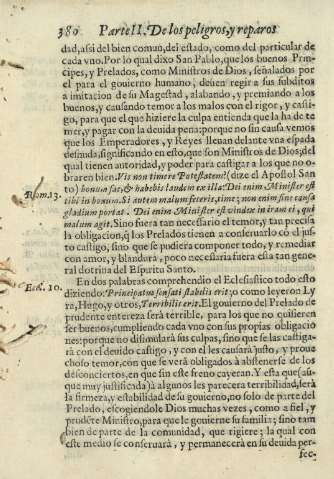 380 Parte II. De los peligros, y reparos
dad, assi del bien comun, del estado, como del particular de
cada vno. Por lo qual dixo San Pablo, que los buenos Prin-
cipes, y Prelados, como Ministros de Dios, señalados por
el para el gouierno humano, deuen regir a sus subditos
a imitacion de su Magestad, alabando, y premiando a los
buenos, y causando temor a los malos con el rigor, y casti-
go, para que el que hiziere la culpa entienda que la ha de te-
mer, y pagar con la deuida pena: porque no sin causa vemos
que los Emperadores, y Reyes lleuan delante vna espada
desnuda, significando en esto, que son Ministros de Dios; del
qual tienen autoridad, y poder para castigar a los que no o-
braren bien. Vis non timere Potestatem? (dize el Apostol San-
Rom. 13. to) bonum fac, & habebis laudem ex illa: Dei enim Minister est
tibi in bonum. Si autem malum feceris, time; non enim sine causa
gladium portat. Dei enim Minister est vindex in iram ei, qui
malum agit. Sino fuera tan necessario el temor, y tan precisa
la obligacion, q̃ los Prelados tienen a conseruarlo cõ el jus-
to castigo, sino que se pudiera componer todo, y remediar
con amor, y blandura, poco necessaria fuera esta tan gene-
ral dotrina del Espiritu Santo.
Eccl. 10. En dos palabras comprehendio el Eclesiastico todo esto
diziendo: Principatus sensati stabilis erit: o como leyeron Ly
ra, Hugo, y otros, Terribilis erit. El gouierno del Prelado de
prudente entereza serà terrible, para los que no quisieren
ser buenos, cumpliendo cada vno con sus propias obligacio
nes: porque no disimularà sus culpas, sino que se las castiga-
rà con el deuido castigo, y con el les causarà justo, y proue
choso temor, con que se verà obligados à abstenerse de los
desconciertos, en que sin este freno cayeran. Y esta que (aũ-
que muy justificada) à algunos les parecera terribilidad, serà
la firmeza, y estabilidad de su gouierno, no solo de parte del
Prelado, escogiendole Dios muchas vezes, como a fiel, y
prudẽte Ministro, para que le gouierne su familia; sino tam
bien de parte de la comunidad, que rigiere; la qual con
este medio se conseruarà, y permanecerà en su deuida per-
fec-